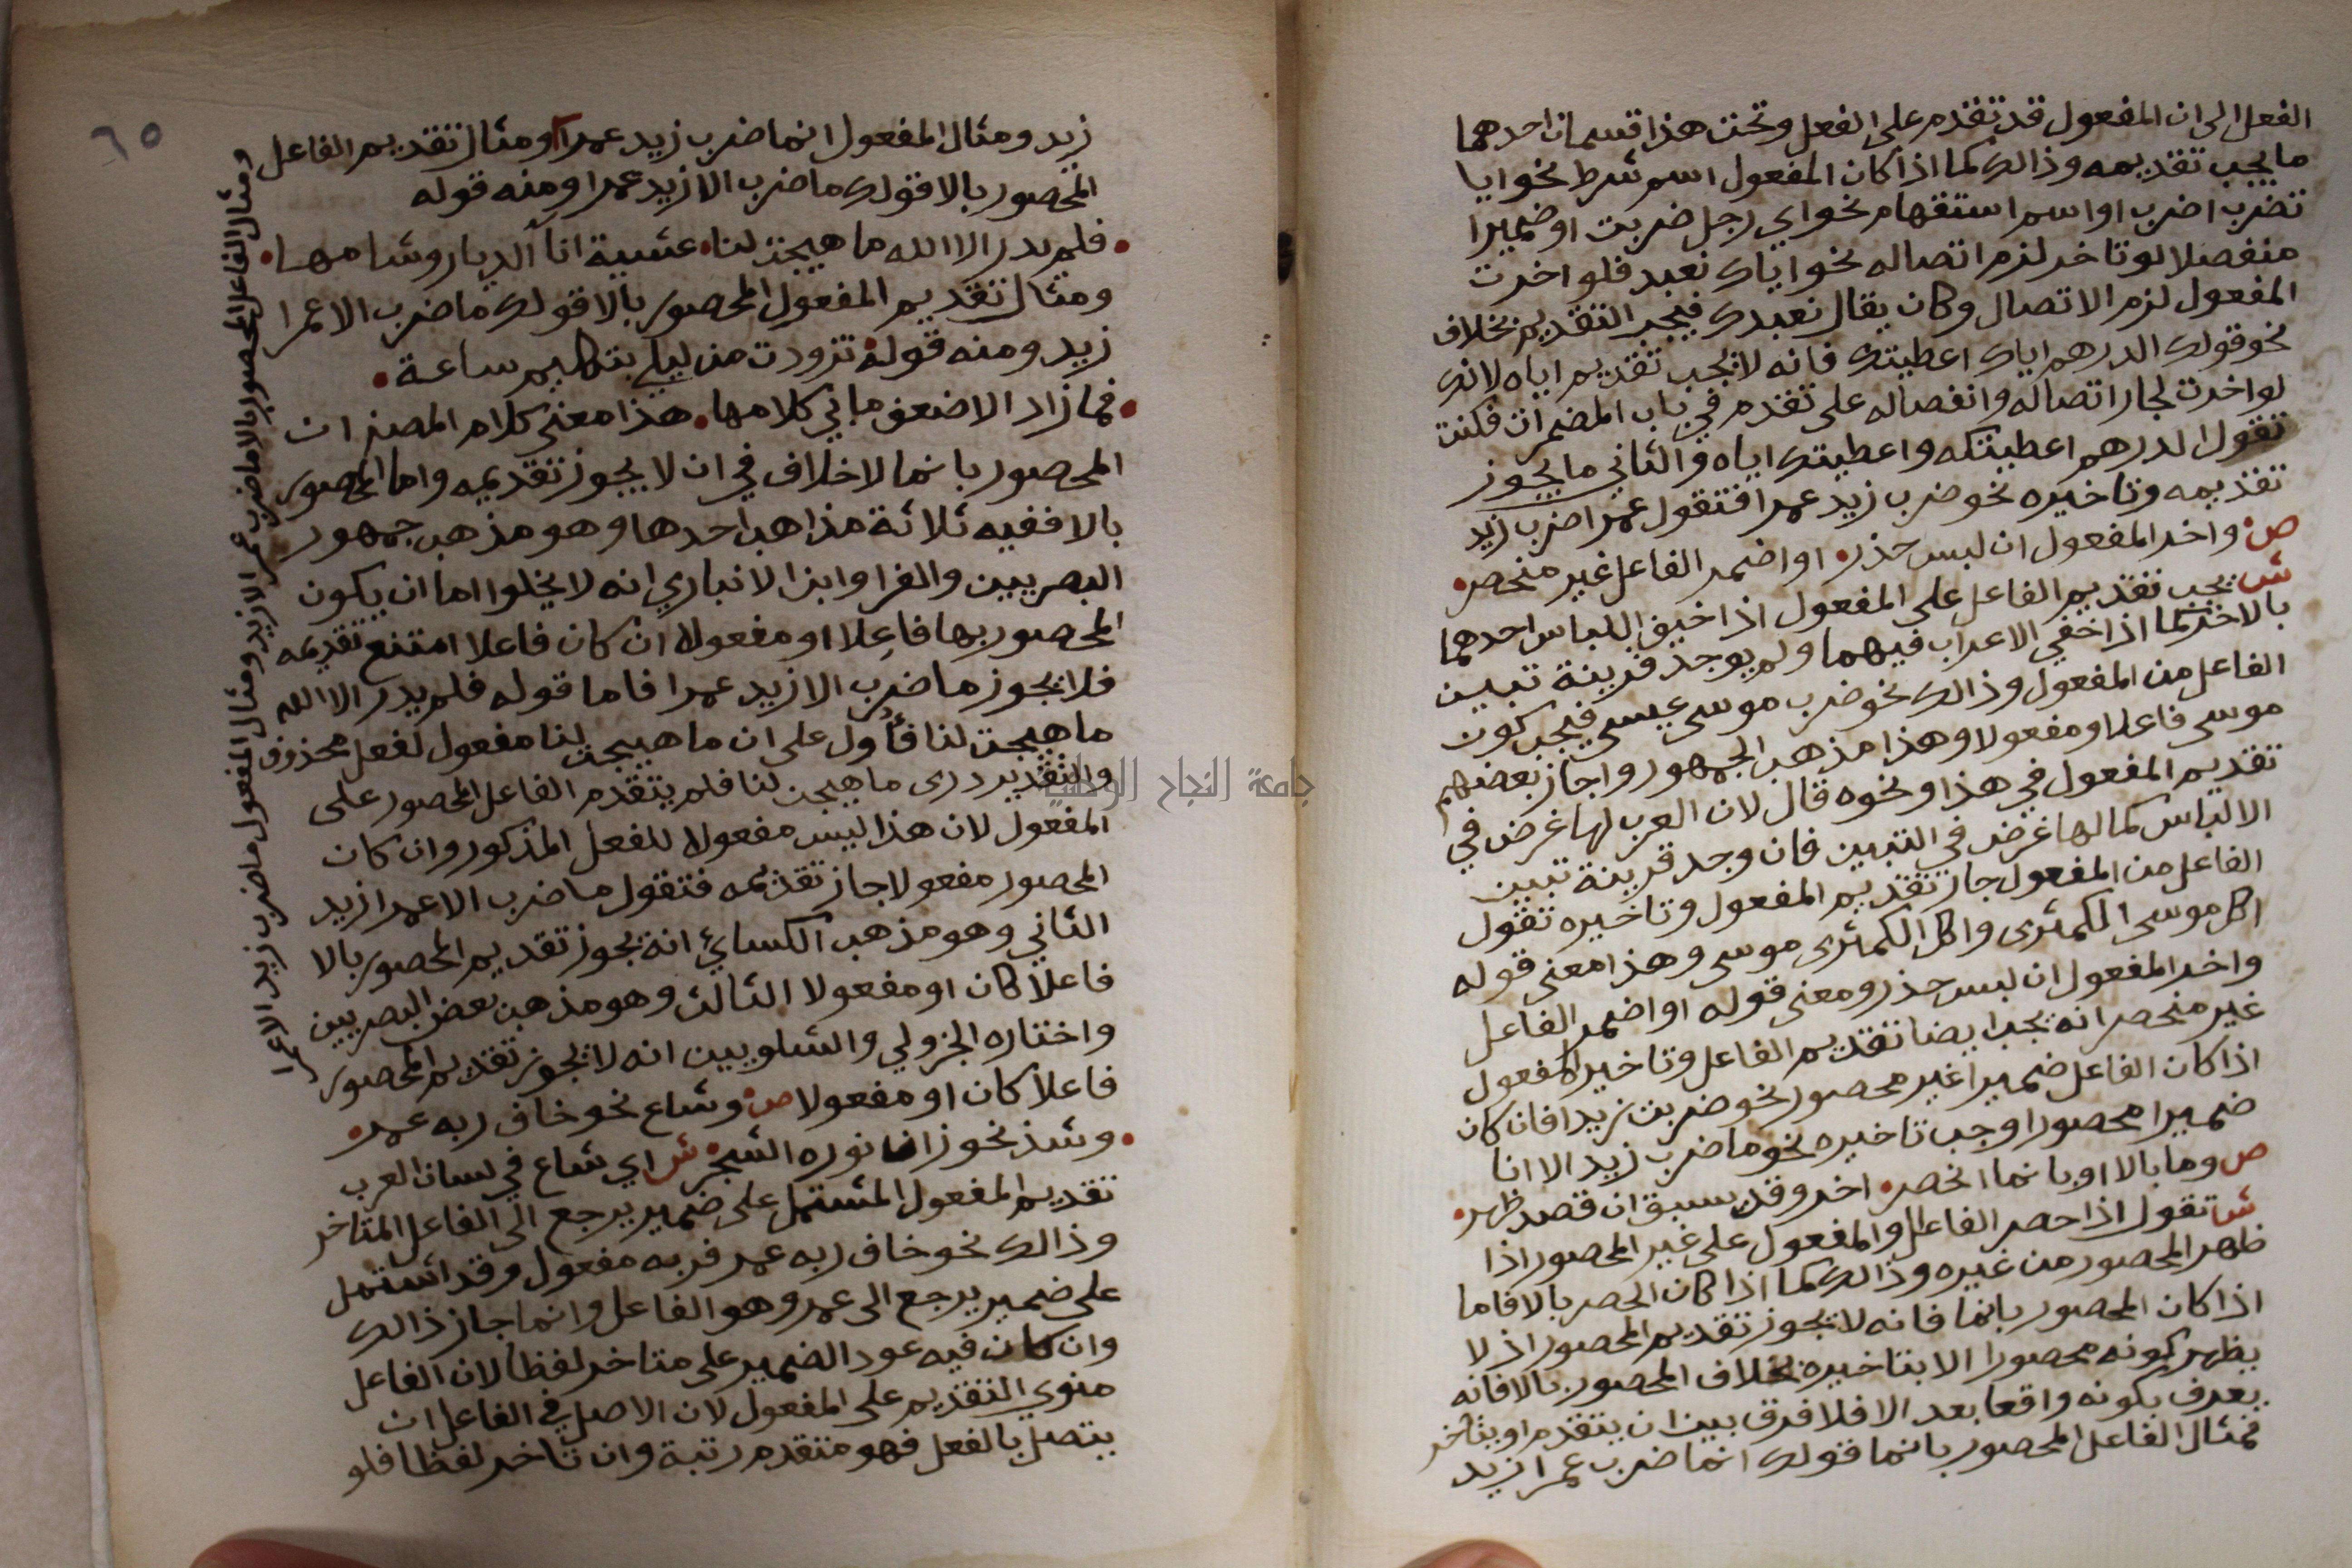 الفعل الى ان المفعول قد تقدم على الفعل وتحت هذا قسمان احدهما
ما يجب تقديمه وذالك كما اذا كان المفعول اسم شرط نحو ايا
تضرب اضرب او اسم استفهام نحو اي رجل ضربت او ضميرا
منفصلا لو تاخر لزم اتصاله نحو اياك نعبد فلو اخرت
المفعول لزم الاتصال وكان يقال نعبدك فيجب التقديم بخلاف
نحو قولك الدرهم اياه اعطيتك فانه لا يجب تقديم اياه لانك
لو اخرت لجاز اتصاله وانفصاله على تقدم في باب المضمرات فكنت
تقول الدرهم اعطيتكه واعطيتك اياه والثاني ما يجوز
تقديمه وتاخيره نحو ضرب زيد عمرا فتقول عمرا ضرب زيد
ص واخر المفعول ان لبس حذر • او اضمر الفاعل غير منحصر •
ش يجب تقديم الفاعل على المفعول اذا خيف اللباس احدهما
بالاخر كما اذا خفي الاعراب فيهما ولم يوجد قرينة تبين
الفاعل من المفعول وذالك نحو ضرب موسى عيسى فيجب كون
موسى فاعلا ومفعولا وهذا مذهب الجمهور واجاز بعضهم
تقديم المفعول في هذا ونحوه قال لان العرب لها غرض في
الالباس كما لها غرض في التبيين فان وجد قرينة تبين
الفاعل من المفعول جاز تقديم المفعول وتاخيره تقول
اكل موسى الكمثرى واكل الكمثرى موسى وهذا معنى قوله
واخر المفعول ان لبس حذر ومعنى قوله او اضمر الفاعل
غير منحصر انه يجب ايضا تقديم الفاعل وتاخير المفعول
اذا كان الفاعل ضميرا غير محصور نحو ضربت زيدا فان كان
ضميرا محصورا وجب تاخيره نحو ما ضرب زيد الا انا
ص وما بالا او بانما انحصر • اخر وقد يسبق ان قصد ظهر •
ش تقول اذا حصر الفاعل والمفعول على غير المحصور اذا
ظهر المحصور من غيره وذالك كما اذا كان الحصر بالا فاما
اذا كان المحصور بانما فانه لا يجوز تقديم المحصور اذ لا
يظهر كونه محصورا الا بتاخيره بخلاف المحصور بالا فانه
يعرف بكونه واقعا بعد الا فلا فرق بين ان يتقدم او يتأخر
فمثال الفاعل المحصور بانما قولك انما ضرب عمرا زيد
٦٥
زيد ومثال المفعول انما ضرب زيد عمرا ومثال تقديم الفاعل
المحصور بالا قولك ما ضرب الا زيد عمرا ومنه قوله
• فلم يدر الا الله ما هيجت لنا • عشية انآ الديار وشامها •
ومثال تقديم المفعول المحصور بالا قولك ما ضرب الا عمرا
زيد ومنه قوله تزودت من ليلى بتكليم ساعة •
• فما زاد الا ضعف ما بي كلامها • هذا معنى كلام المصنف ان
المحصور بانما لا خلاف في ان لا يجوز تقديمه واما المحصور
بالا ففيه ثلاثة مذاهب احدها وهو مذهب جمهور
البصريين والفرا وابن الانباري انه لا يخلوا اما ان يكون
المحصور بها فاعلا او مفعولا ان كان فاعلا امتنع تقديمه
فلا يجوز ما ضرب الا زيد عمرا فاما قوله فلم يدر الا الله
ما هيجت لنا فأُول على ان ما هيجت لنا مفعول لفعل محذوف
والتقدير درى ما هيجت لنا فلم يتقدم الفاعل المحصور على
المفعول لان هذا ليس مفعولا للفعل المذكور وان كان
المحصور مفعولا جاز تقديمه فتقول ما ضرب الا عمرا زيد
الثاني وهو مذهب الكسائي انه يجوز تقديم المحصور بالا
فاعلا كان او مفعولا الثالث وهو مذهب بعض البصريين
واختاره الجزولي والشلوبين انه لا يجوز تقديم المحصور
فاعلا كان او مفعولا ص وشاع نحو خاف ربه عمر •
• وشذ نحو زان نوره الشجر ش اي شاع في لسان العرب
تقديم المفعول المشتمل على ضمير يرجع الى الفاعل المتاخر
وذالك نحو خاف ربه عمر فربه مفعول وقد اشتمل
على ضمير يرجع الى عمر وهو الفاعل وانما جاز ذالك
وان كان فيه عود الضمير على متاخر لفظا لان الفاعل
منوي التقديم على المفعول لان الاصل في الفاعل ان
يتصل بالفعل فهو متقدم رتبة وان تاخر لفظا فلو
ومثال الفاعل المحصور بالا ما ضرب عمرا الا زيد ومثال المفعول ما ضرب زيد الا عمرا
جامعة النجاح الوطنية